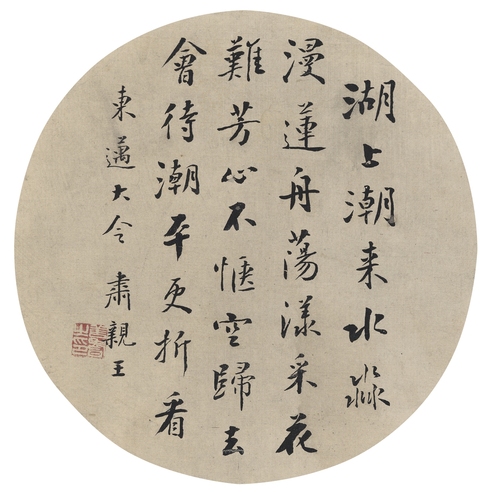 湖上潮来水淼
漫蓮舟蕩漾采花
難芳心不愜空歸去
會待潮平更折看
東邁大令 肅親王